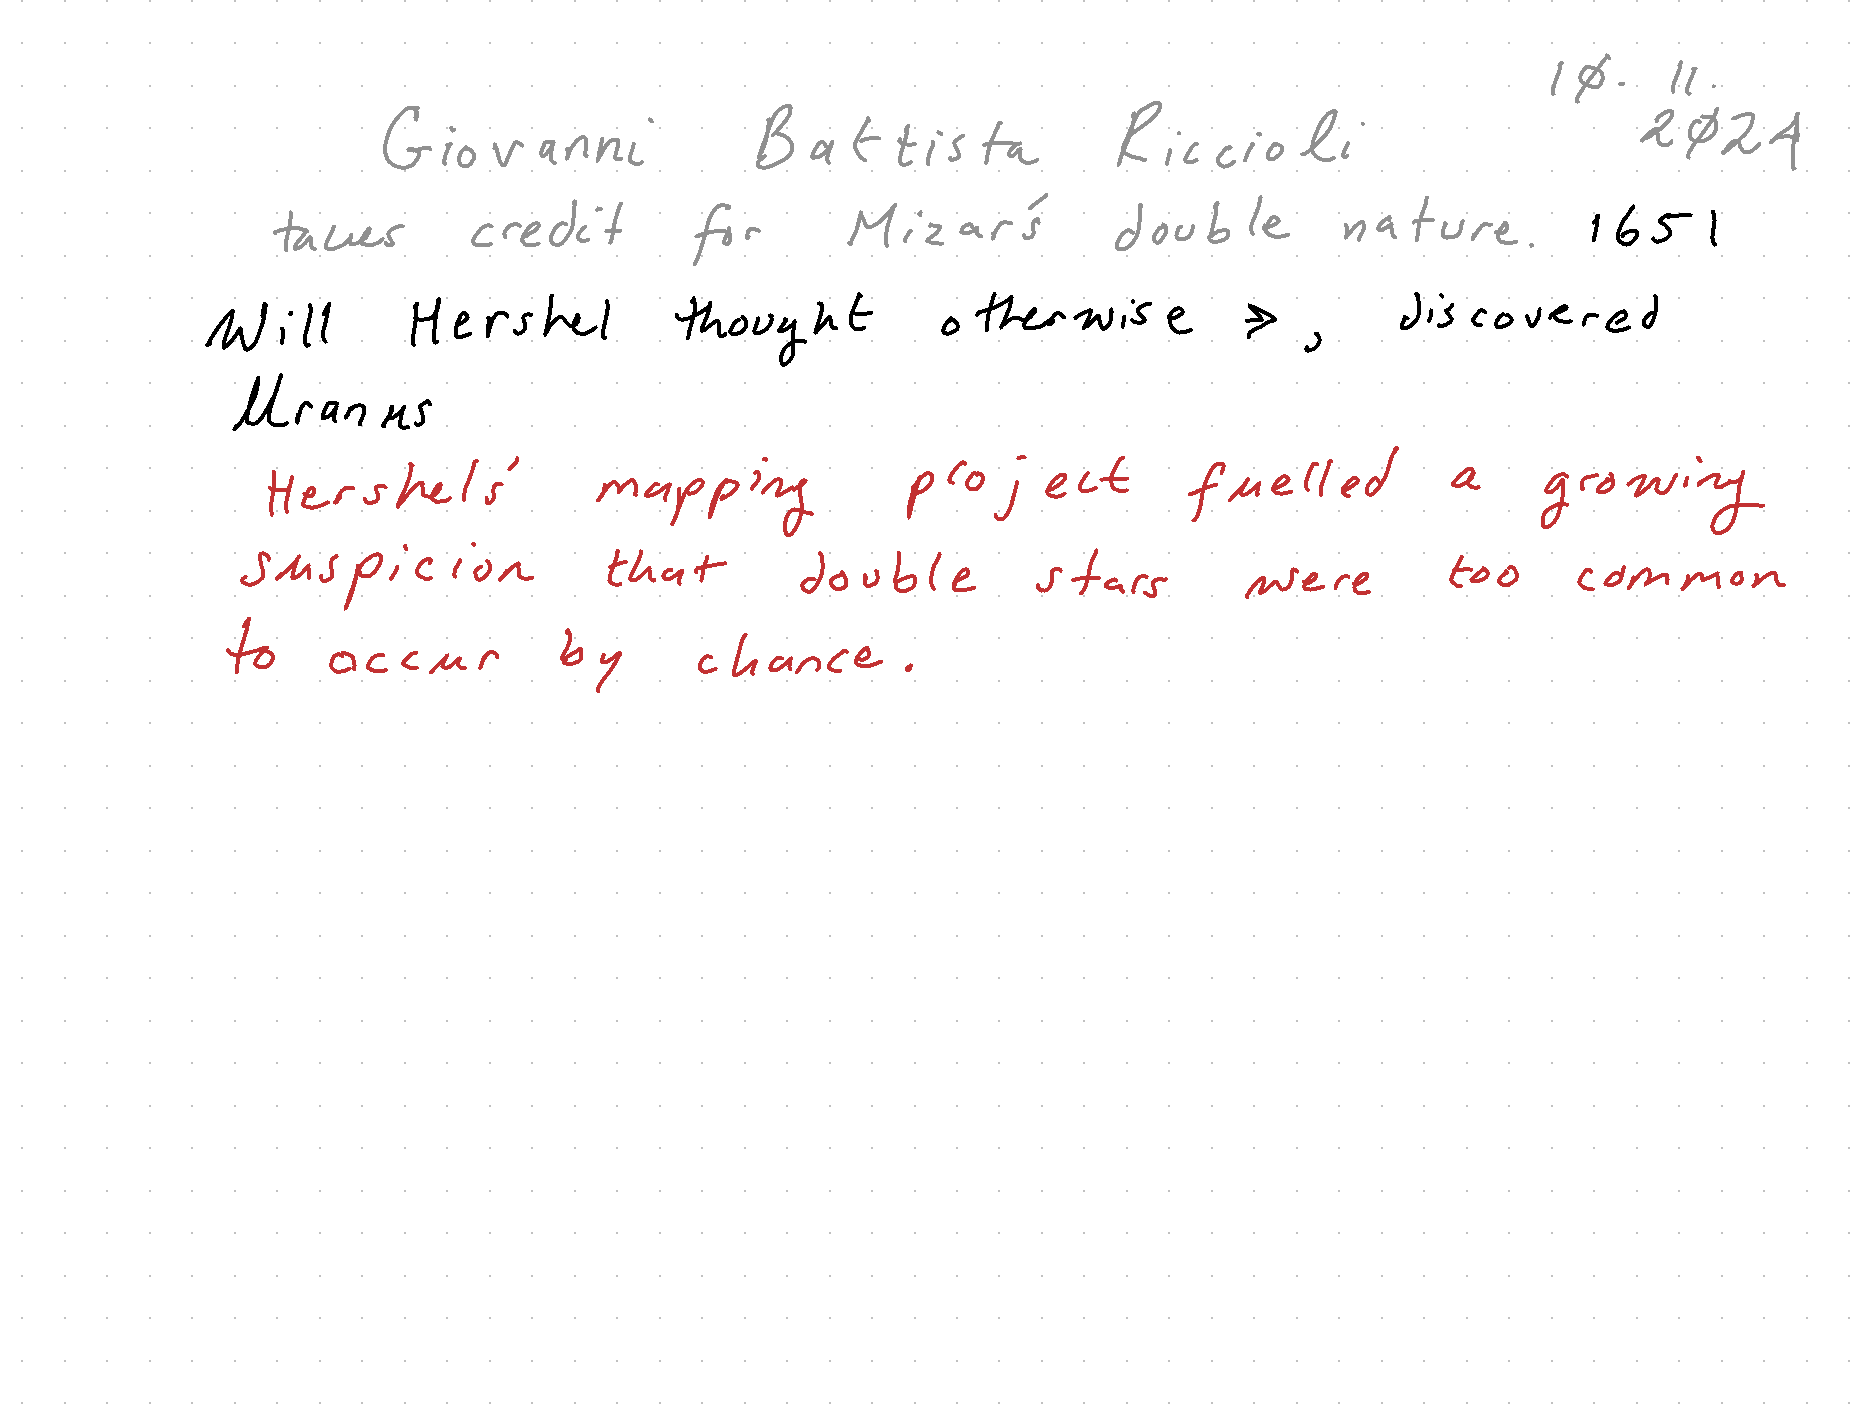 1Ø. 11.
2Ø24
Giovanni Battista Riccioli
takes credit for Mizar's double nature. 1651
Will Hershel thought otherwise >>, discovered
Uranus
Hershels' mapping project fuelled a growing
suspicion that double stars were too common
to occur by chance.